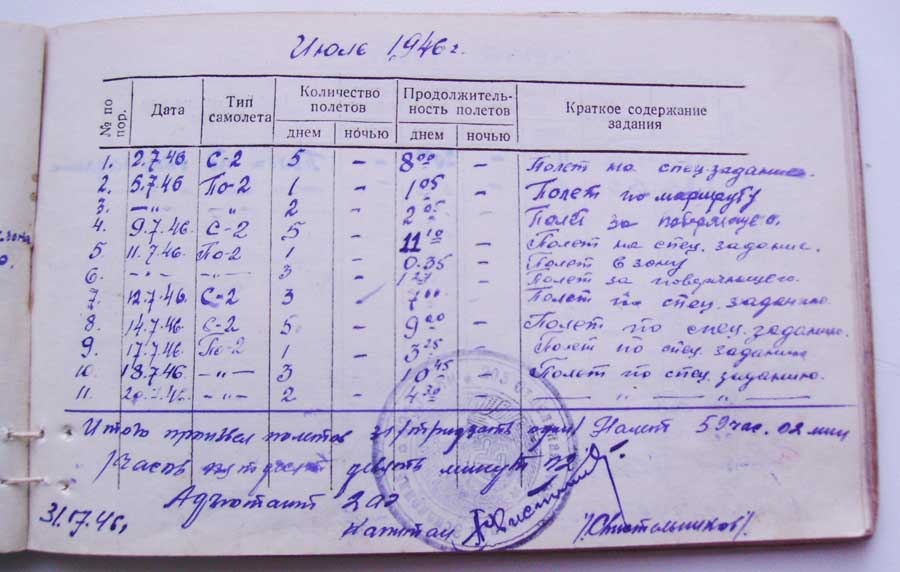 Июль 1946 г.
№ по пор. Дата Тип самолета Количество полетов Продолжительность полетов Краткое содержание задания
днем ночью днем ночью
1. 2.7.46 С-2 5 – 8 00 – Полет на спец. задание.
2. 5.7.46 По-2 1 – 1 05 – Полет по маршруту
3. –"– –"– 2 – 2 05 – Полет за
4. 9.7.46. С-2 5 – 11 10 – Полет на спец. задание.
5. 11.7.46. По-2 1 – 0.35 – Полет в зону
6. –"– –"– 3 – 1 27 – Полет за поверяющего.
7. 12.7.46. С-2 3 – 7 00 – Полет по спец. заданию.
8. 14.7.46. С-2 5 – 9 00 – Полет по спец. заданию.
9. 17.7.46. По-2 1 – 3 25 – Полет по спец. заданию
10. 18.7.46 –"– 3 – 10 45 – Полет по спец. заданию.
11. 20.7.46. –"– 2 – 4 30 – – " – " –
Итого произвел полетов 31 /тридцать один/ Налет 59 час. 02 мин
/Часов пятдесят девять минут 02
Адъютант 2 аэ
31.7.46г капитан